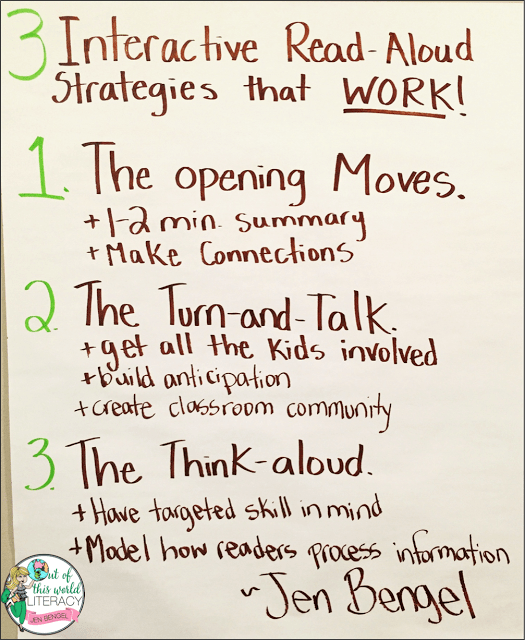 3 Interactive Read-Aloud
Strategies that WORK!
1. The opening Moves.
+1-2 min. summary
+Make Connections
2. The Turn-and-Talk.
+get all the kids involved
+build anticipation
+create classroom community
3. The Think-aloud.
+Have targeted skill in mind
+Model how readers process information
~Jen Bengel
Out of
this world
LITERACY
JEN BENGEL